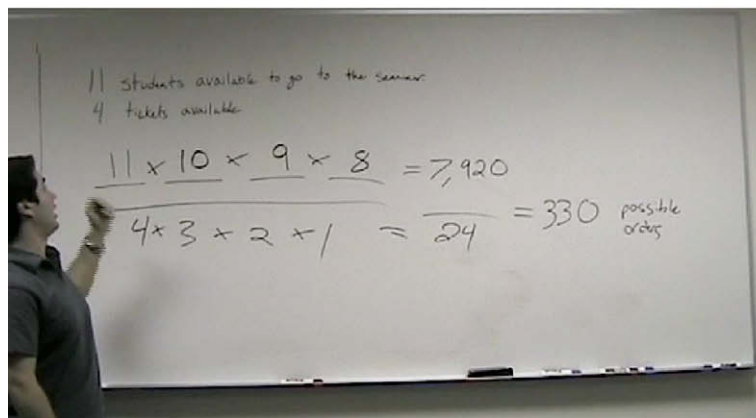 11 students available to go to the seminar.
4 tickets available
11 × 10 × 9 × 8 = 7,920
4 × 3 × 2 × 1 = 24 = 330 possible
orders